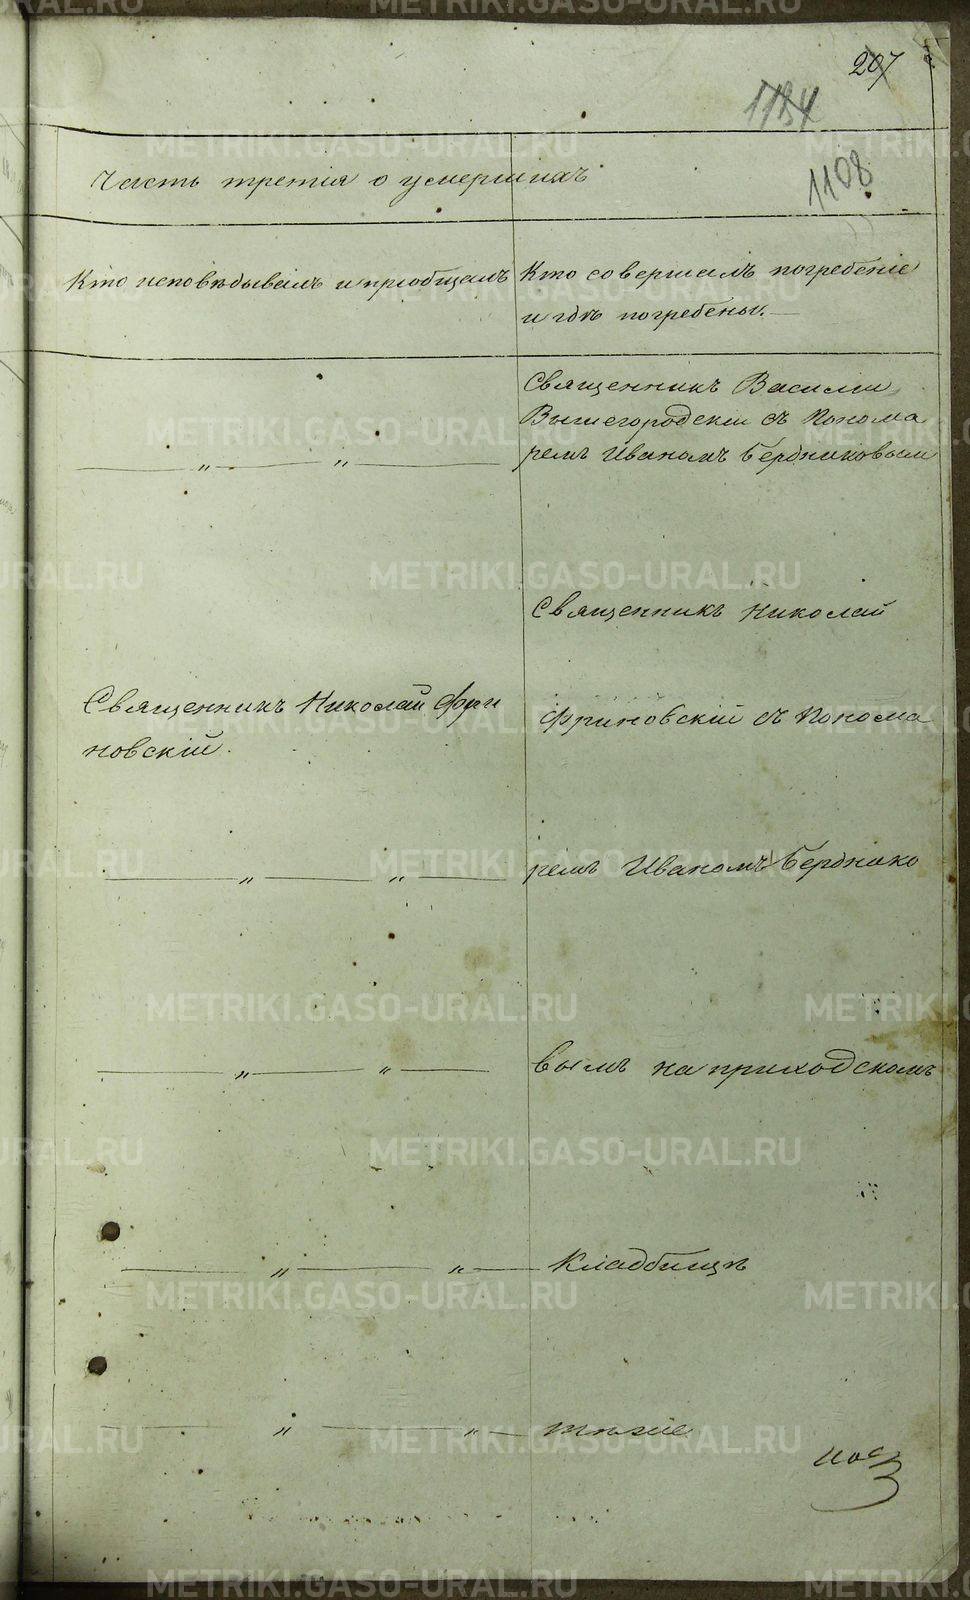 207
1134
1108
Часть третія о умершихъ
Кто исповѣдывалъ и пріобщалъ
Кто совершалъ погребеніе
и гдѣ погребены.
Священникъ Василій
Вышегородскій съ Понома
ремъ Иваномъ Бердниковым
Священникъ Николай
Священникъ Николай Фри
новскій.
Фриновскій съ Понома
ремъ Иваномъ Берднико
вымъ на приходскомъ
кладбищѣ
тѣхіе
METRIKI.GASO-URAL.RU